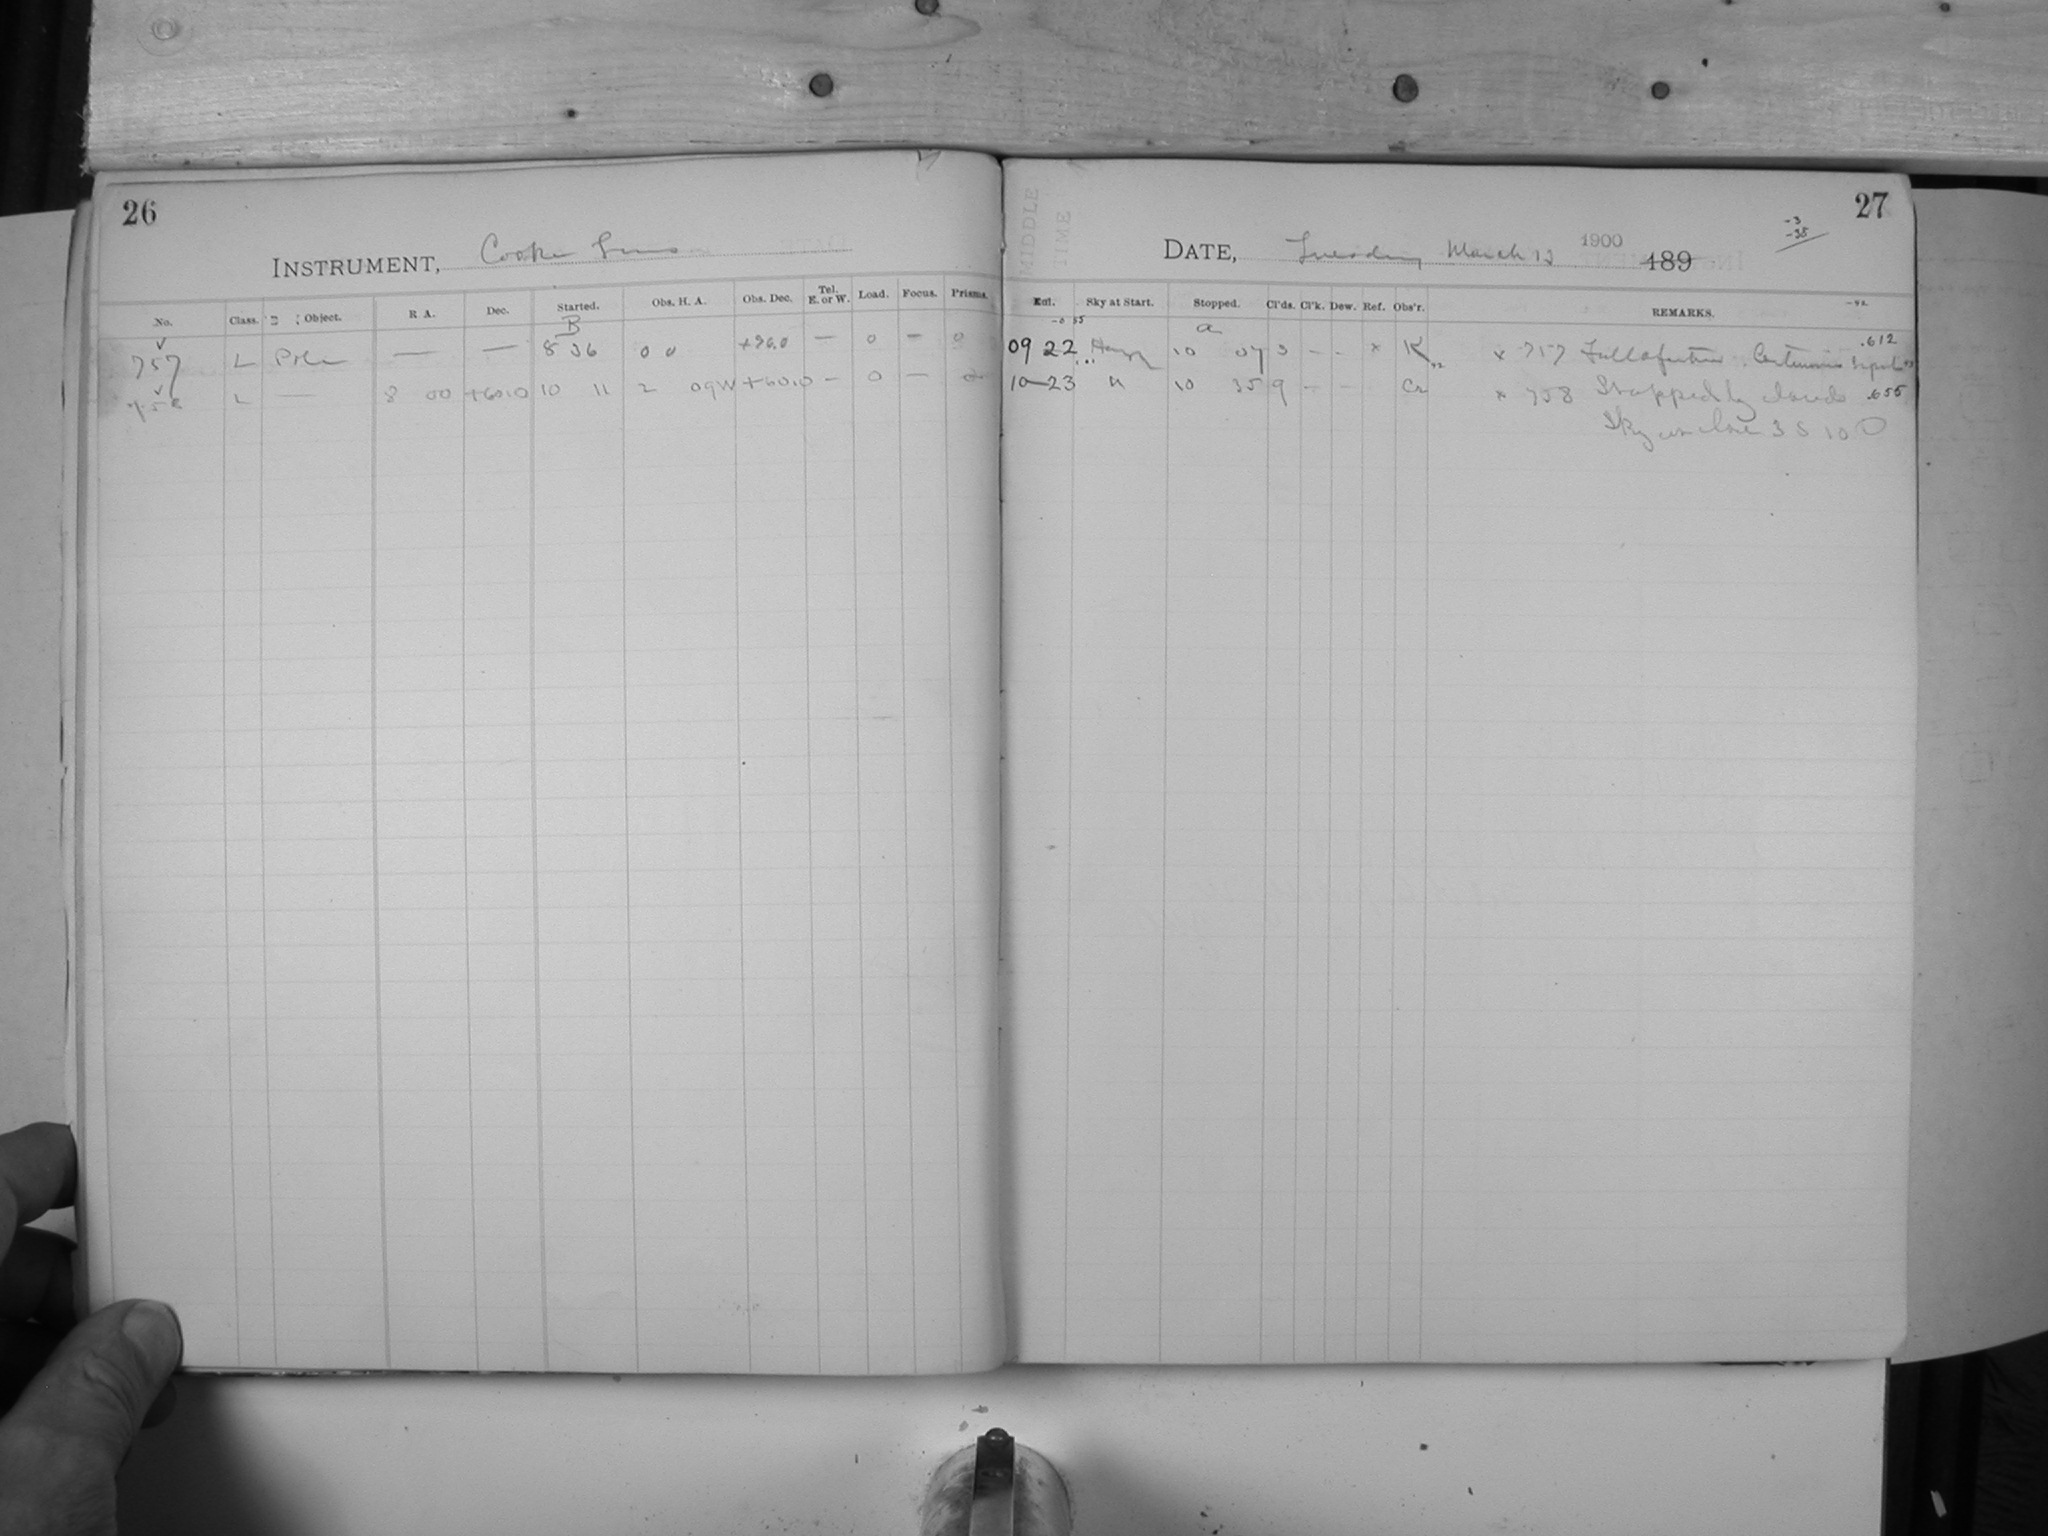 26
INSTRUMENT, Cooke Lens
No. Class. Object. R A. Dec. Started. Obs. H. A. Obs. Dec. Tel. E. or W. Load. Focus. Prisms.
B
757 L Pole — — 8 36 0 0 +90.0 — 0 — 0
758 L — 8 00 +60.0 10 11 2 09W +60.0 — 0 — 0
MIDDLE
TIME
27
-3
-35
DATE, Tuesday March 13 1900 189
Ext. Sky at Start. Stopped. Cl'ds. Cl'k. Dew. Ref. Obs'r. REMARKS.
a
09 22 Hazy 10 07 3 - - x K x 757 Full aperture. .612
10 23 " 10 35 9 - - Cr x 758 Stopped by clouds .655
Sky 3 S 10 0